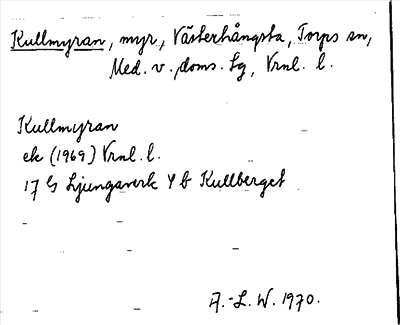 Kullmyran, myr, Västerhångsta, Torps sn,
Med. v. doms. tg, Vrnl. l.
Kullmyran
ek (1969) Vrnl. l.
17 G Ljungaverk 4 b Kullberget
A.-L. W. 1970.